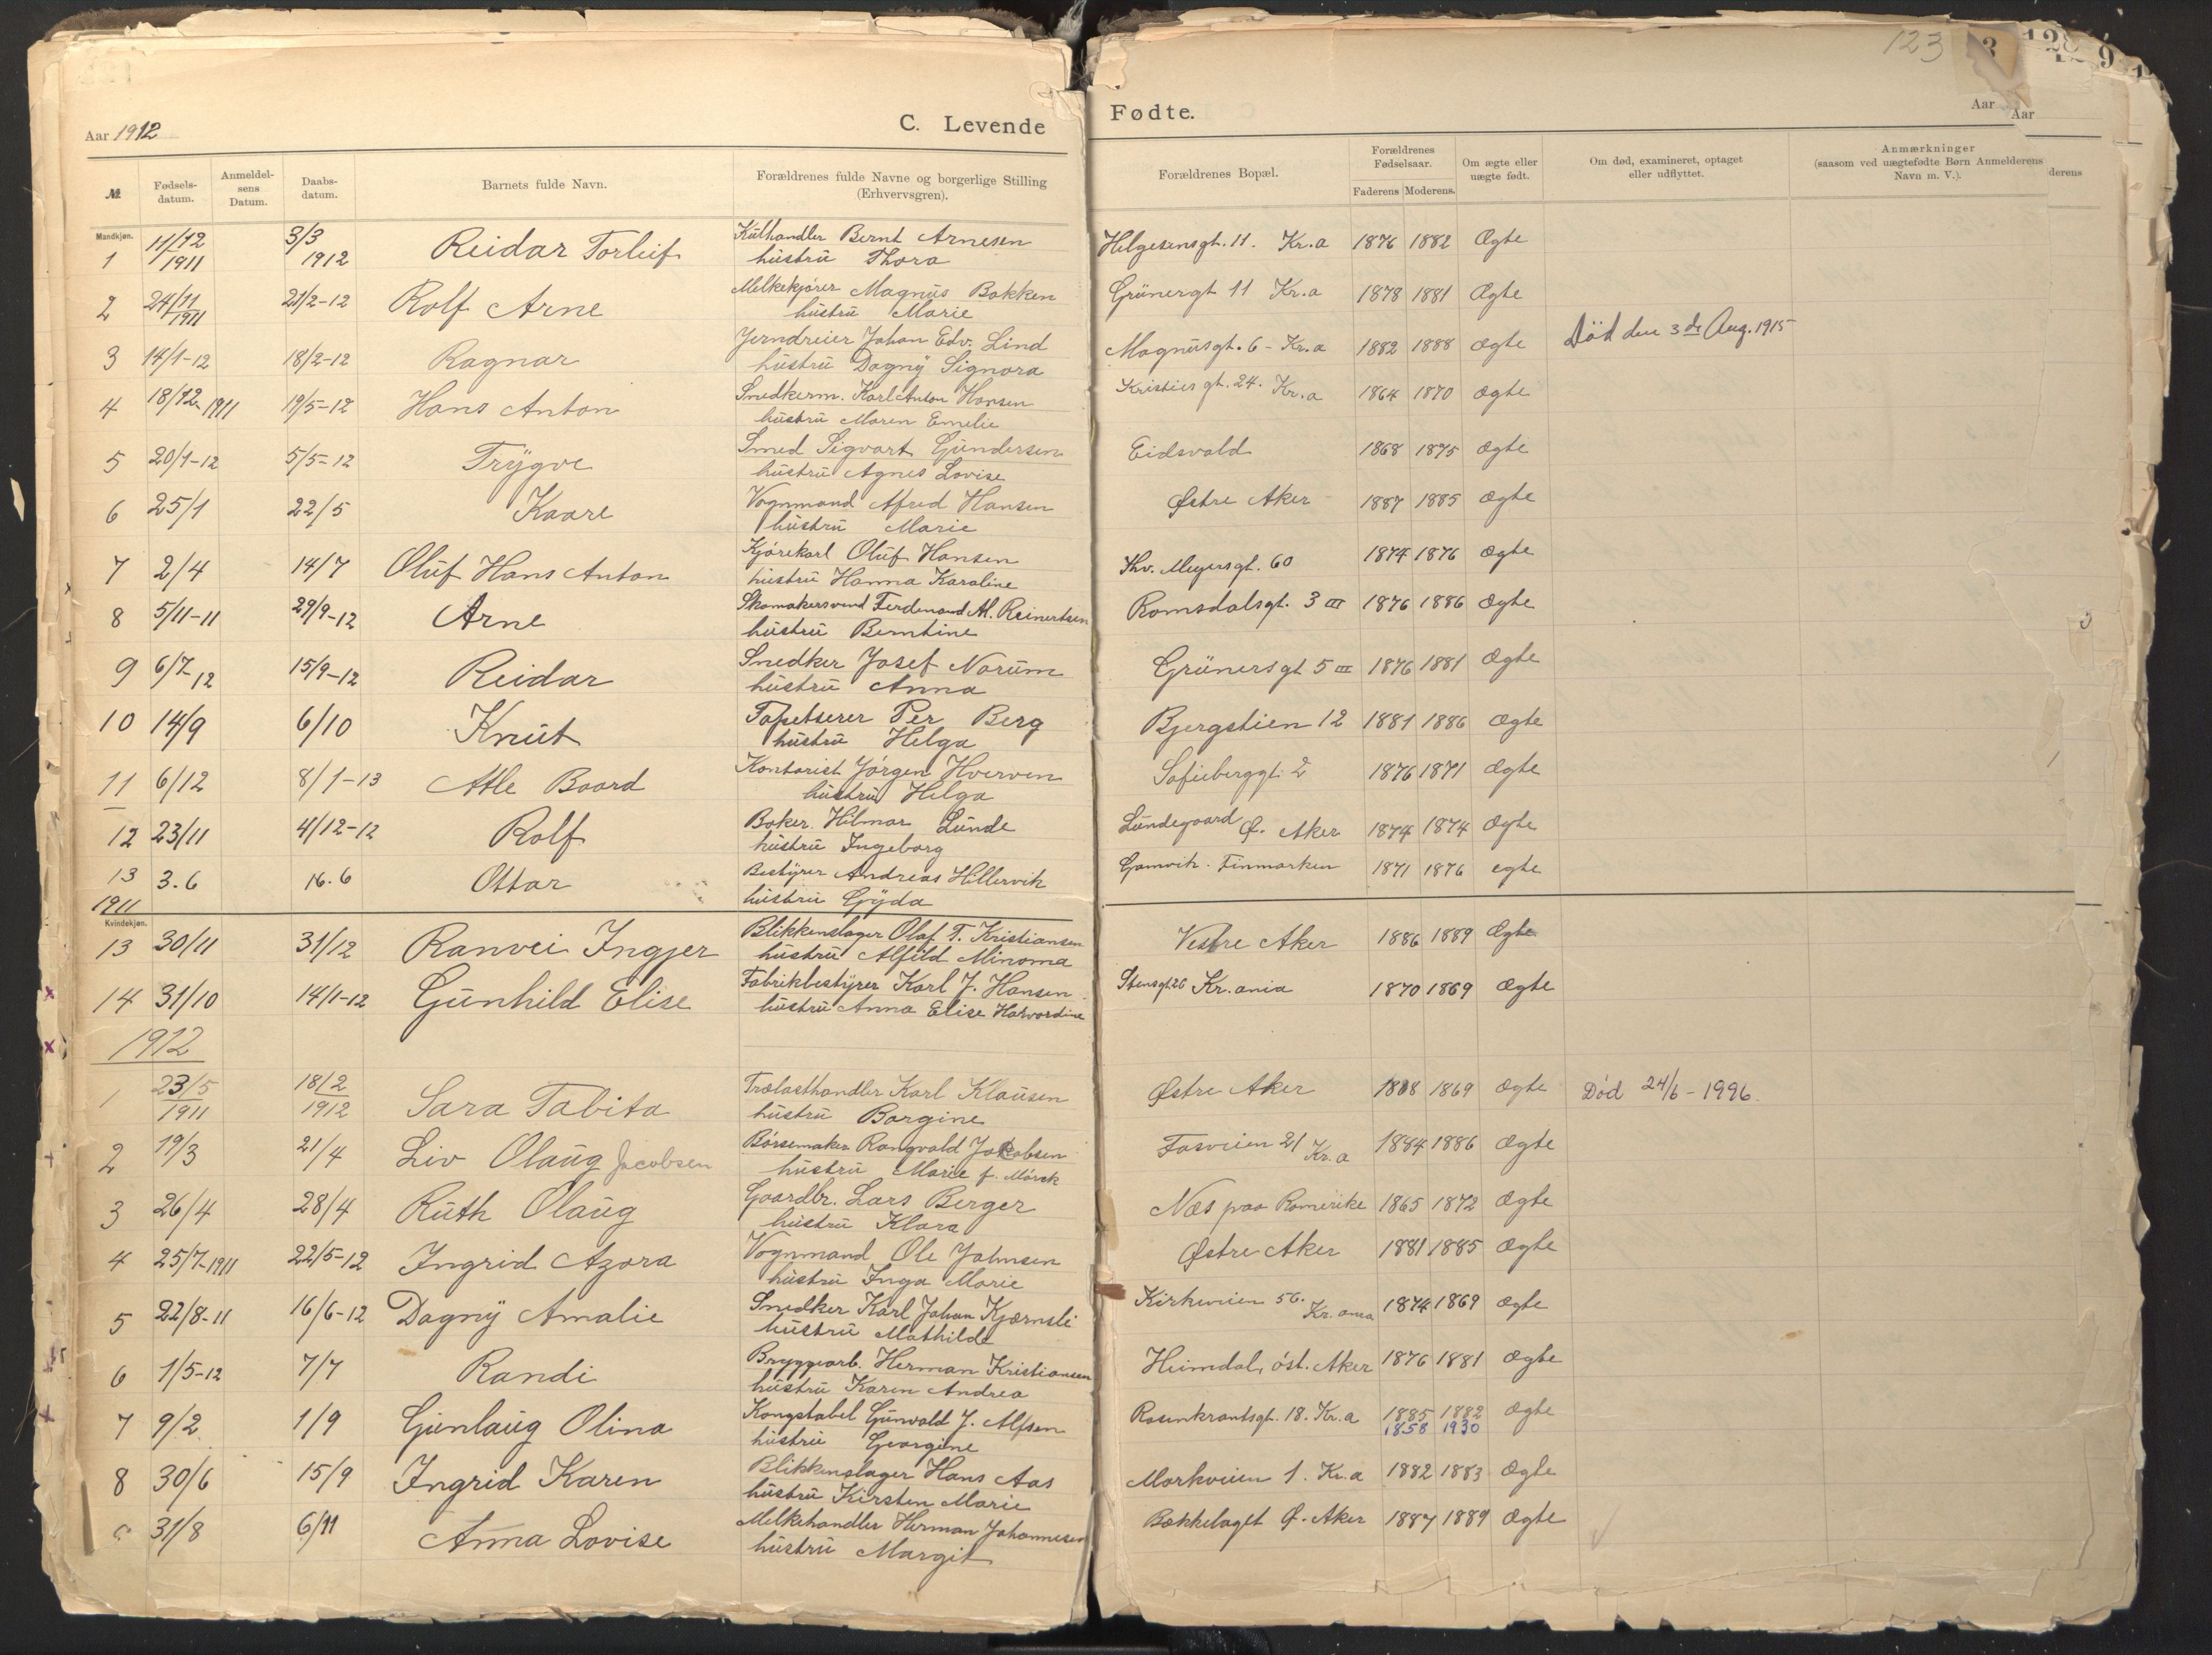 123
Aar 1912
C. Levende
Fødte.
Aar
Aar
№
Fødsels-datum.
Anmeldel-sens Datum.
Daabs-datum.
Barnets fulde Navn.
Forældrenes fulde Navne og borgerlige Stilling (Erhvervsgren).
Forældrenes Bopæl.
Forældrenes Fødselsaar.
Faderens Moderens.
Om ægte eller uægte født.
Om død, examineret, optaget eller udflyttet.
Anmærkninger (saasom ved uægtefødte Børn Anmelderens Navn m. V.).
derens
Mandkjøn.
1 11/12 1911 3/3 1912 Reidar Torleif Kulhandler Bernt Arnesen Helgesensgt. 11. Kr.a 1876 1882 Ægte
hustru Thora
2 24/11 1911 21/2-12 Rolf Arne Melkekjører Magnus Bakken Grünergt 11 Kr.a 1878 1881 Ægte
hustru Marie
3 14/1-12 18/2-12 Ragnar Jerndreier Johan Edv. Lind Magnusgt. 6 - Kr.a 1882 1888 ægte Död den 3de Aug. 1915
hustru Dagny Signora
4 18/12-1911 19/5-12 Hans Anton Snedkerm. Karl Anton Hansen Kristies gt. 24. Kr.a 1864 1870 ægte
hustru Maren Emelie
5 20/1-12 5/5-12 Trygve Smed Sigvart Gundersen Eidsvold 1868 1875 ægte
hustru Agnes Lovise
6 25/1 22/5 Kaare Vognmand Alfred Hansen Østre Aker 1887 1885 ægte
hustru Marie
7 2/4 14/7 Oluf Hans Anton Kjørekarl Oluf Hansen Thv. Meyersgt. 60 1874 1876 ægte
hustru Hanna Karoline
8 5/11-11 29/9-12 Arne Skomakersvend Ferdenand Al. Reinertsen Romsdalsgt. 3 III 1876 1886 ægte
hustru Berntine
9 6/7-12 15/9-12 Reidar Snedker Josef Norum Grünersgt 5 III 1876 1881 Ægte
hustru Anna
10 14/9 6/10 Knut Tapetserer Per Berg Bjergstien 12 1881 1886 ægte
hustru Helga
11 6/12 8/1-13 Atle Baard Kontorist Jørgen Hverven Sofieberggt. 2 1876 1871 ægte
hustru Helga
12 23/11 4/12-12 Rolf Baker Hilmar Lunde Lundegaard Ø. Aker 1874 1874 ægte
hustru Ingeborg
13 3.6 16.6 Ottar Bestyrer Andreas Hellervik Gamvik - Finmarken 1871 1876 egte
1911 hustru Gyda
Kvindekjøn.
13 30/11 31/12 Ranvei Ingjer Blikkenslager Olaf T. Kristiansen Vestre Aker 1886 1889 Ægte
hustru Alfild Minoma
14 31/10 14/1-12 Gunhild Elise Fabrikbestyrer Karl J. Hansen Stensgt. 26 Kr.ania 1870 1869 ægte
hustru Anna Elise Havordine
1912
1 23/5 1911 18/2 1912 Sara Tabita Trælasthandler Karl Klausen Østre Aker 1869 ægte Død 24/6 - 1996.
hustru Borgine
2 19/3 21/4 Liv Olaug Jacobsen Børsemaker Rangvald Jakobsen Fasveien 21 Kr.a 1884 1886 ægte
hustru Marie f. Mörck
3 26/4 28/4 Ruth Olaug Gaardbr. Lars Berger Næs paa Romerike 1865 1872 ægte
hustru Klara
4 25/7-1911 22/5-12 Ingrid Azora Vognmand Ole Johnsen Østre Aker 1881 1885 ægte
hustru Inga Marie
5 22/8-11 16/6-12 Dagny Amalie Snedker Karl Johan Kjærnsli Kirkeveien 56. Kr.ania 1874 1869 ægte
hustru Mathilde
6 1/5-12 7/7 Randi Bryggearb. Herman Kristiansen Heimdal, öst. Aker 1876 1881 ægte
hustru Karen Andrea
7 9/2 1/9 Gunlaug Olina Konstabel Gunvald J. Alfsen Rosenkrantsgt. 18. Kr.a 1885 1882 ægte
hustru Georgine 1858 1930
8 30/6 15/9 Ingrid Karen Blikkenslager Hans Aas Markveien 1. Kr.a 1882 1883 Ægte
hustru Kirsten Marie
9 31/8 6/11 Anna Lovise Melkehandler Herman Johannesen Bækkelaget Ø. Aker 1887 1889 ægte
hustru Margit